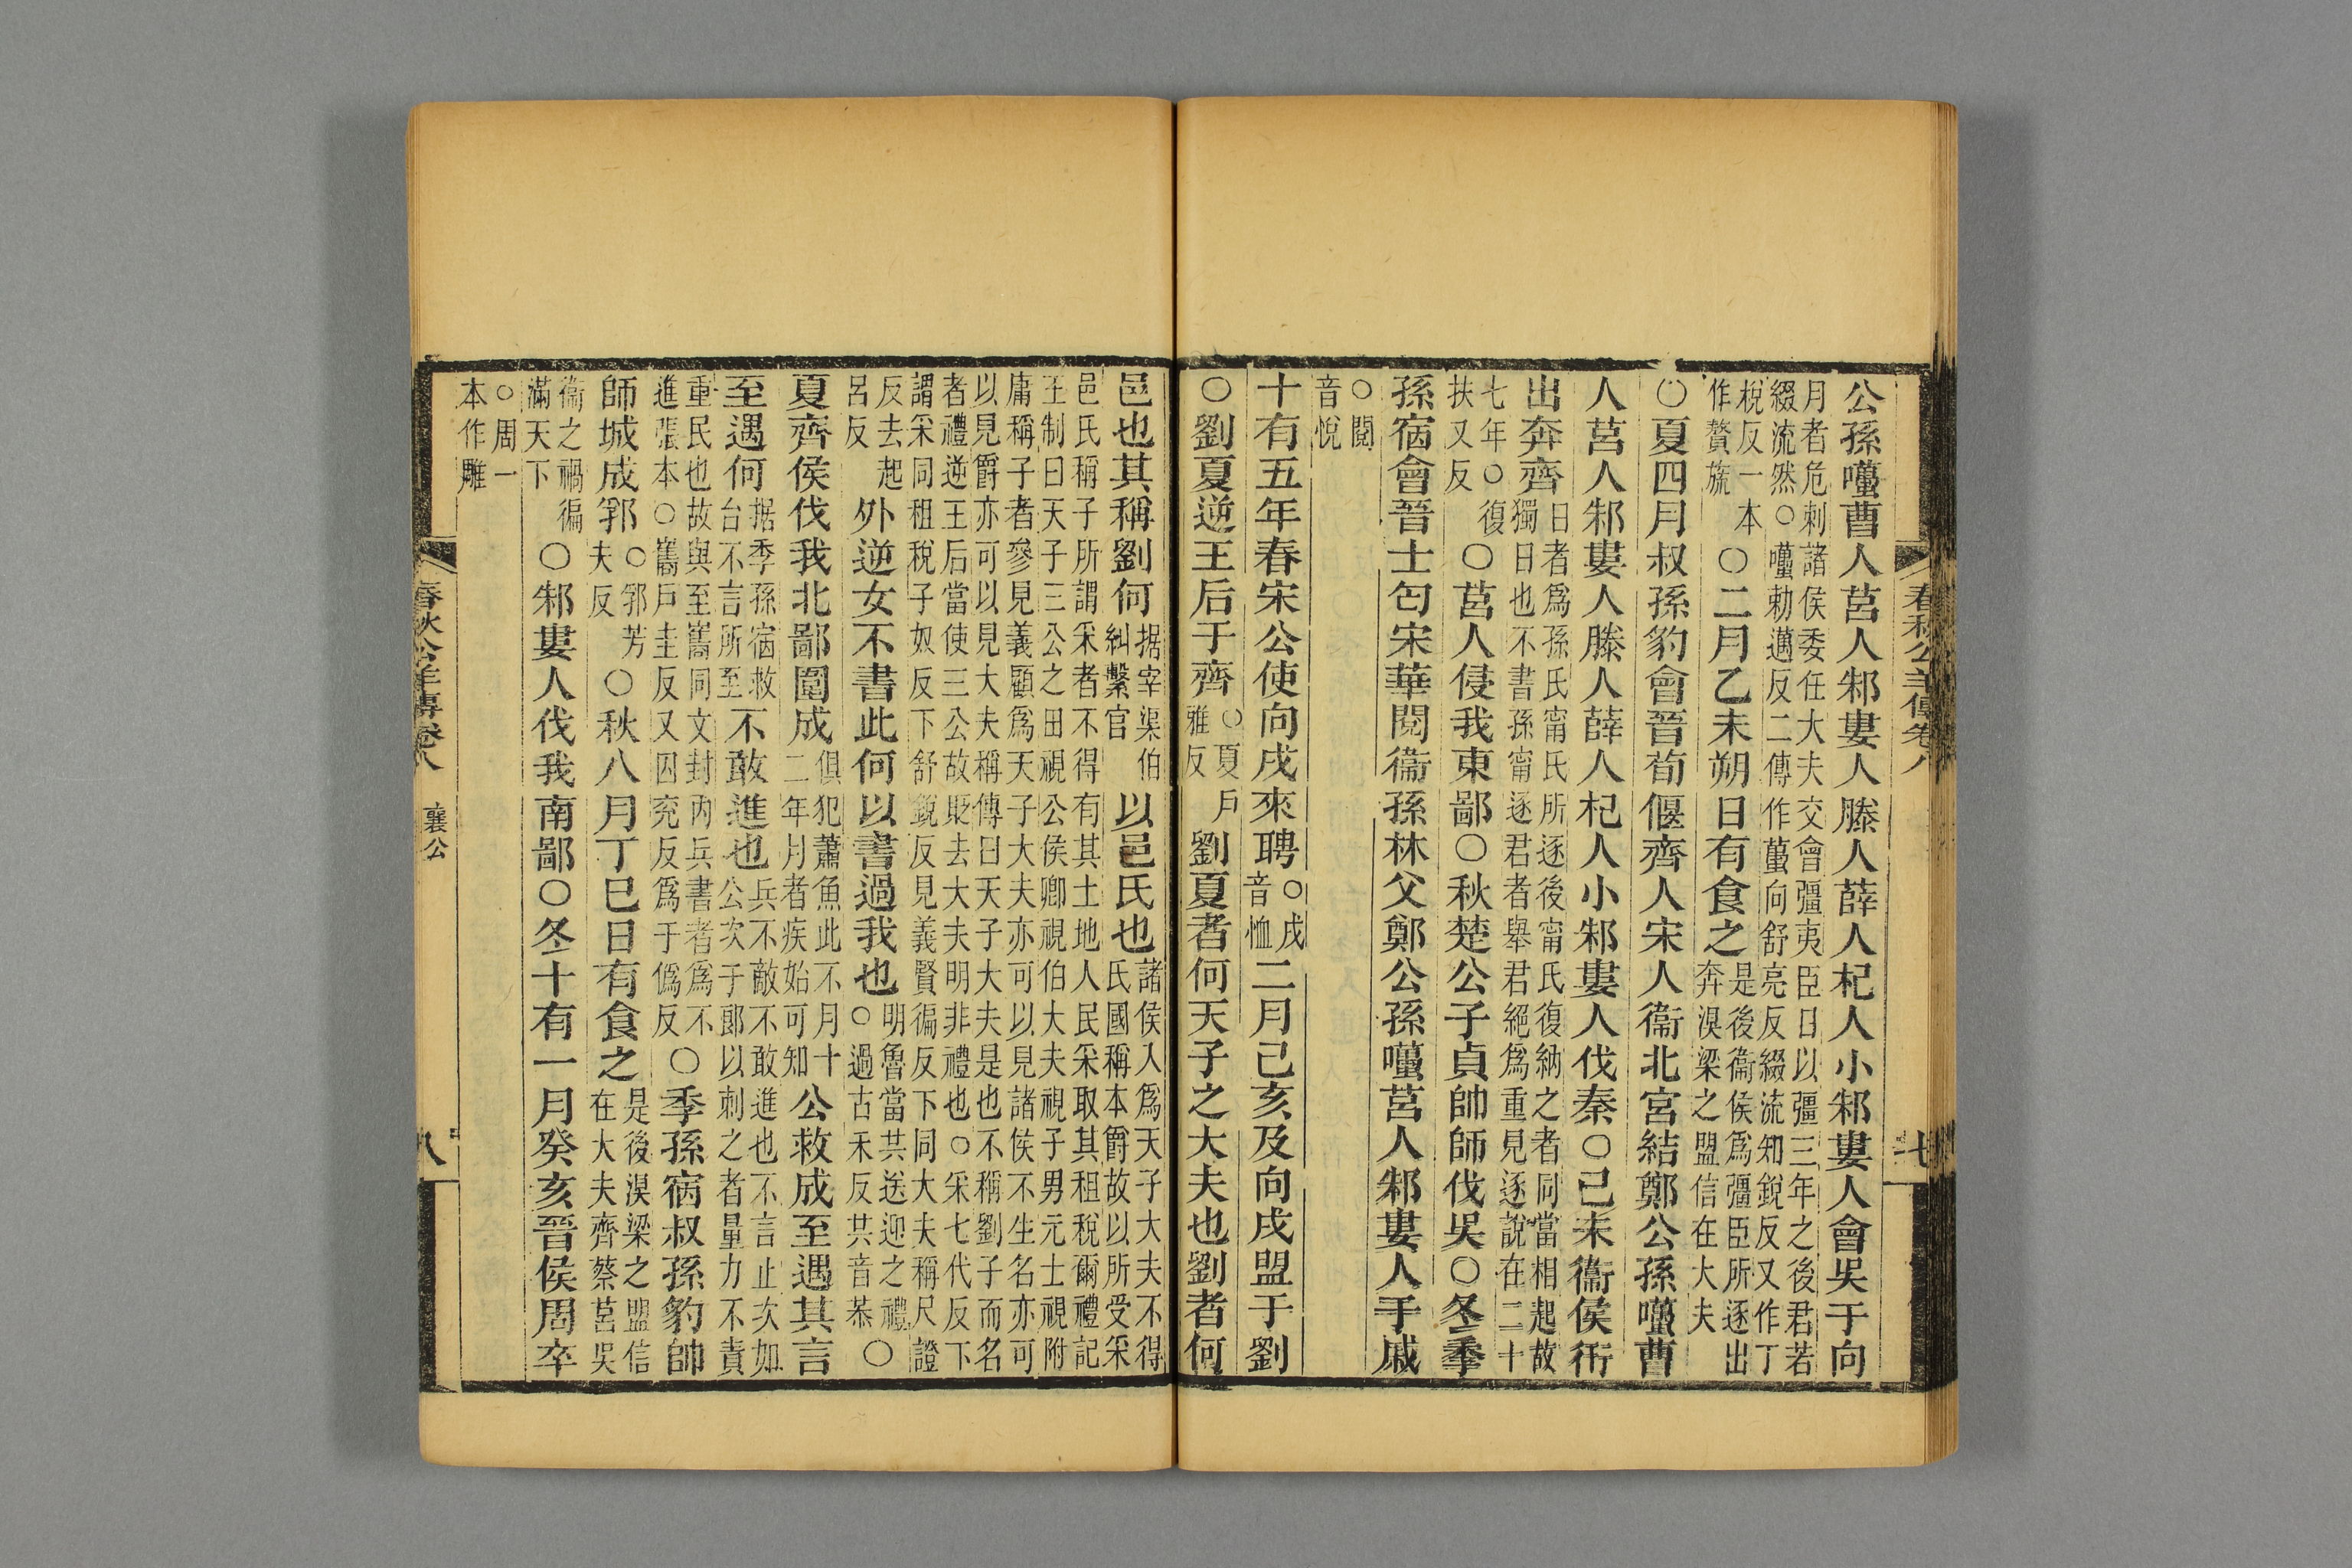 春秋公羊傳卷八
七
公孫囆曹人莒人邾婁人滕人薛人杞人小邾婁人會吳于向
月者危刺諸侯委任大夫交會彊夷臣日以彊三年之後君若
綴流然○囆勑邁反二傳作蠆向舒亮反綴流知銳反又作丁
稅反一本
作贅旒
○二月乙未朔日有食之
是後衞侯爲彊臣所逐出
奔溴梁之盟信在大夫
○夏四月叔孫豹會晉荀偃齊人宋人衞北宮結鄭公孫囆曹
人莒人邾婁人滕人薛人杞人小邾婁人伐秦○己未衞侯衎
出奔齊
日者爲孫氏甯氏所逐後甯氏復納之者同當相起故
獨日也不書孫甯逐君者舉君絕爲重見逐說在二十
七年○復
扶又反
○莒人侵我東鄙○秋楚公子貞帥師伐吳○冬季
孫宿會晉士匄宋華閱衞孫林父鄭公孫囆莒人邾婁人于戚
○閱
音悅
十有五年春宋公使向戌來聘
○戌
音恤
二月己亥及向戌盟于劉
○劉夏逆王后于齊
○夏戶
雅反
劉夏者何天子之大夫也劉者何
邑也其稱劉何
据宰渠伯
糾繫官
以邑氏也
諸侯入爲天子大夫不得
氏國稱本爵故以所受采
邑氏稱子所謂采者不得有其土地人民采取其租稅爾禮記
王制曰天子三公之田視公侯卿視伯大夫視子男元士視附
庸稱子者參見義顧爲天子大夫亦可以見諸侯不生名亦可
以見爵亦可以見大夫稱傳曰天子大夫是也不稱劉子而名
者禮逆王后當使三公故貶去大夫明非禮也○采七代反下
謂采同租稅子奴反下舒銳反見義賢徧反下同大夫稱尺證
反去起
呂反
外逆女不書此何以書過我也
明魯當共送迎之禮
○過古禾反共音恭
○
夏齊侯伐我北鄙圍成
俱犯蕭魚此不月十
二年月者疾始可知
公救成至遇其言
至遇何
据季孫宿救
台不言所至
不敢進也
兵不敵不敢進也不言止次如
公次于郎以刺之者量力不責
重民也故與至巂同文封內兵書者爲不
進張本○巂戶圭反又囚兖反爲于僞反
○季孫宿叔孫豹帥
師城成郛
○郛芳
夫反
○秋八月丁巳日有食之
是後溴梁之盟信
在大夫齊蔡莒吳
衞之禍徧
滿天下
○邾婁人伐我南鄙○冬十有一月癸亥晉侯周卒
○周一
本作雕
春秋公羊傳卷八
襄公
八